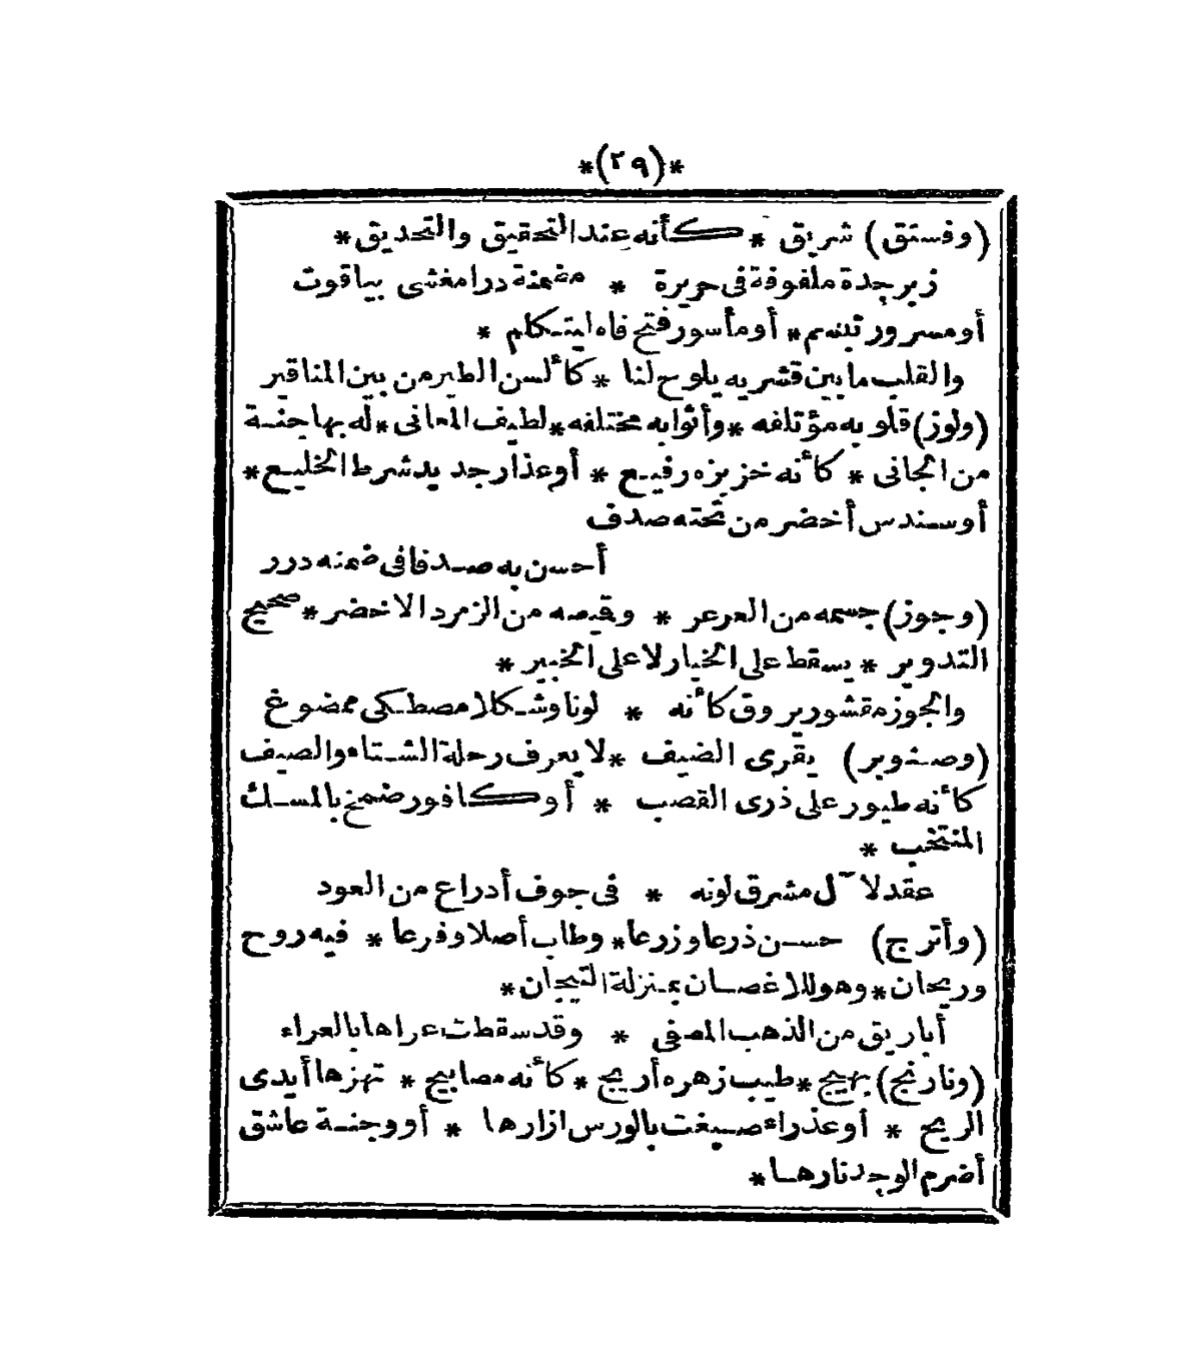 *(٢٩)*
(وفستق) شريق * كأنه عند التحقيق والتحديق *
زبرجدة ملفوفة في حريرة * مضمنة درا مغشى بياقوت
أو مسرور تبسم * أو مأسور فتح فاه ليتكلم *
والقلب ما بين قشريه يلوح لنا * كألسن الطير من بين المناقير
(ولوز) قلوبه مؤتلفه * وأثوابه مختلفه * لطيف المعانى * له بها جنة
من الجانى * كأنه خز بزه رفيع * أو عذار جديد شرط الخليع *
أو سندس أخضر من تحته صدف
أحسن به صدفا فى ضمنه درر
(وجوز) جسمه من العرعر * وقيصه من الزمرد الاخضر * صحيح
التدوير * يسقط على الخيار لا على الخبير *
والجوز مقشور يروق كأنه * لونا وشكلا مصطكى ممضوغ
(وصنوبر) يقرى الضيف * لا يعرف رحلة الشتاء والصيف
كأنه طيور على ذرى القصب * أو كافور ضمخ بالمسك
المنتخب *
عقد لآل مشرق لونه * فى جوف أدراع من العود
(وأترج) حسن ذرعا وزرعا * وطاب أصلا وفرعا * فيه روح
وريحان * وهو للاغصان بمنزلة التيجان *
أباريق من الذهب المصفى * وقد سقطت عراها بالعراء
(ونارنج) بهيج * طيب زهره أريج * كأنه مصابيح * تهزها أيدى
الريح * أو عذراء صبغت بالورس ازارها * أو وجنة عاشق
أضرم الوجد نارها *